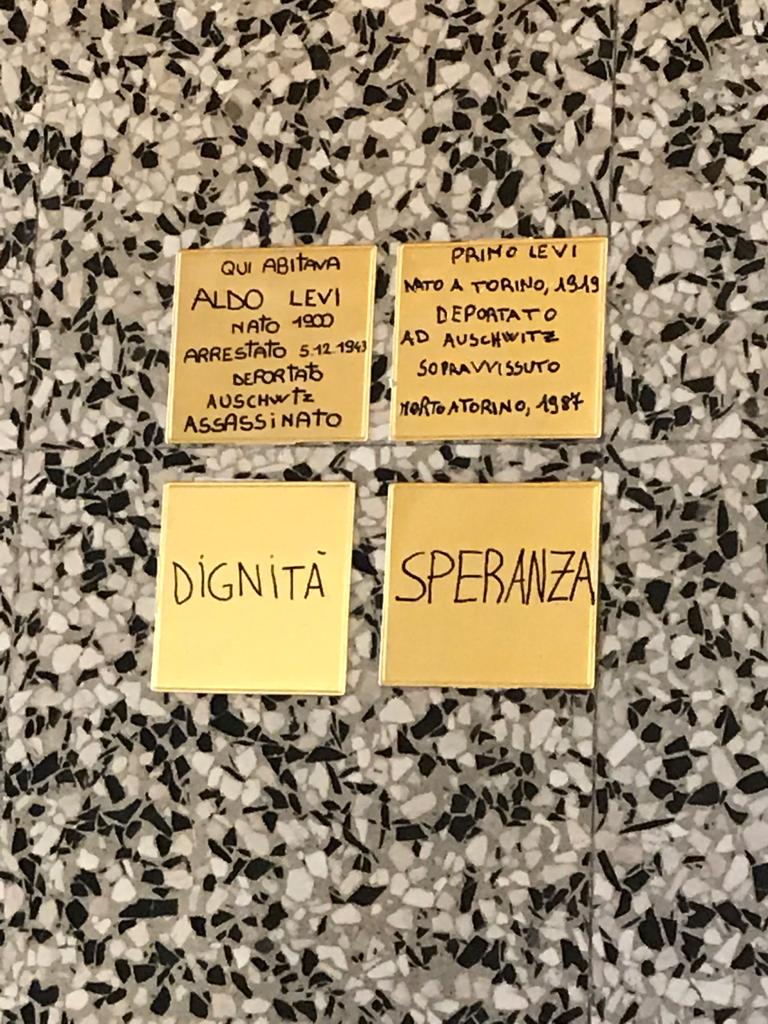 QUI ABITAVA
ALDO LEVI
NATO 1900
ARRESTATO 5.12.1943
DEPORTATO
AUSCHWITZ
ASSASSiNATO
PRIMO LEVI
NATO A TORINO, 1919
DEPORTATO
AD AUSCHWITZ
SOPRAVVISSUTO
MORTO A TORINO, 1987
DiGNiTÀ
SPERANZA